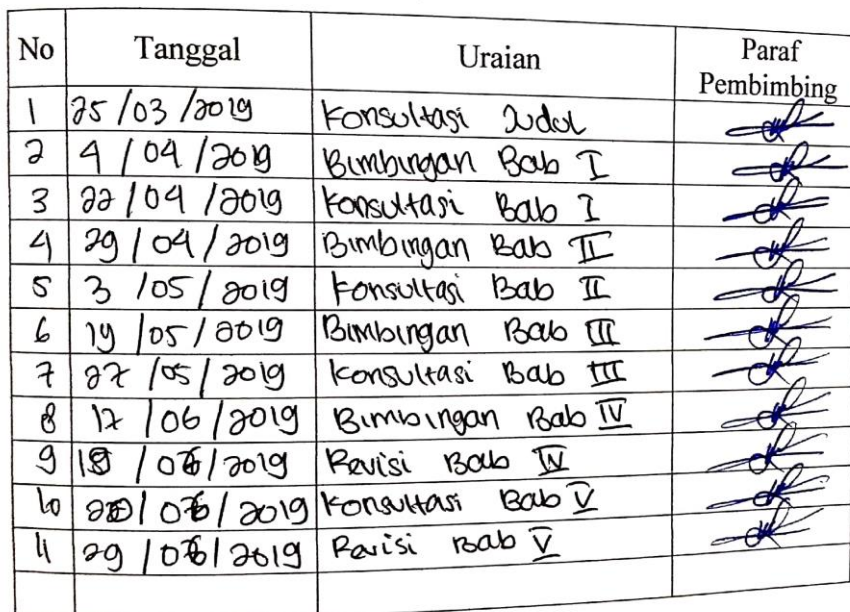 No Tanggal Uraian Paraf Pembimbing
1 25/03/2019 Konsultasi Judul
2 4/04/2019 Bimbingan Bab I
3 22/04/2019 Konsultasi Bab I
4 29/04/2019 Bimbingan Bab II
5 3/05/2019 Konsultasi Bab II
6 19/05/2019 Bimbingan Bab III
7 27/05/2019 Konsultasi Bab III
8 17/06/2019 Bimbingan Bab IV
9 Revisi Bab IV
10 Konsultasi Bab V
11 Revisi Bab V